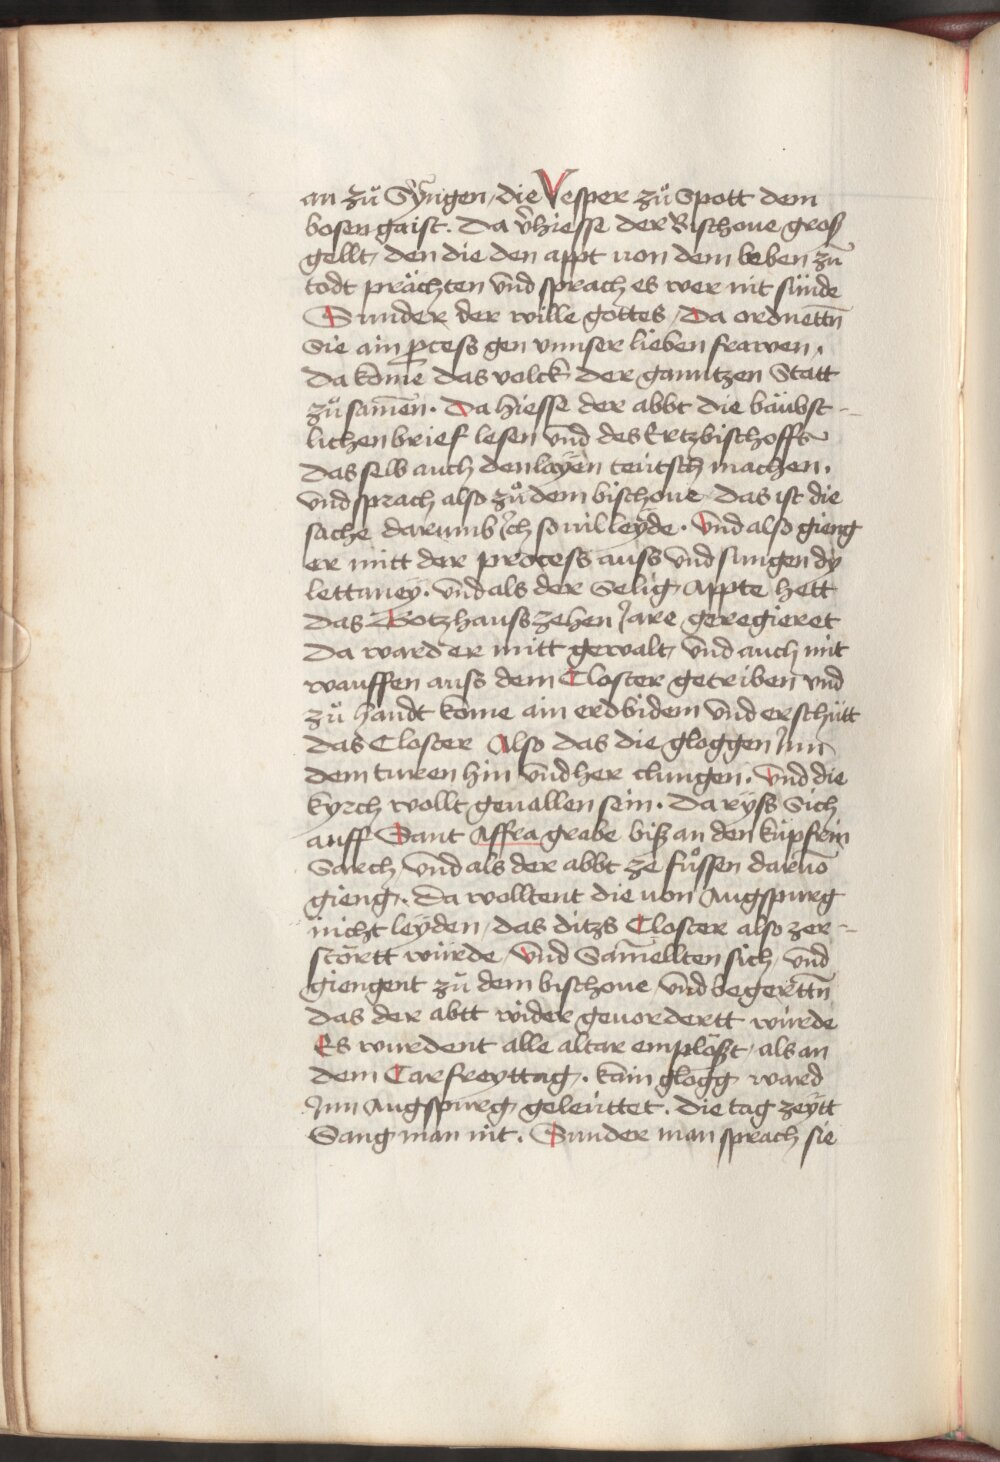 an zů Sÿngen, die Vesper zů Spott dem
bosen gaist. Da v̉hiesse der Bischoue groß
gellt, den die den appt von dem leben zu̅
todt prächten vnd sprach, es wer nit sünde
Sunder der wille gottes, Da ordnettn̅
Sie ain p̲cess gen vnnser lieben frawen,
Da kome das volck der gantzen Statt
zůsamen̅. Da hiesse der abbt die bäubst-
lichen brief lesen vnd des Ertzbischoffs
das selb auch den layen teütsch machen.
vnd sprach also zů dem bischoue, das ist die
sache darumb Ich so vil leyde. Vnd also gieng
er mitt der process auss vnd sungen dy
lettaney. vnd als der Selig Appte hett
das Gotzhauss zehen Jare geregieret
Da ward er mitt gewalt, vnd auch mit
wauffen auss dem Closter getriben vnd
zů handt kome ain erdbidem vnd erschütt
das Closter Also das die gloggen Jnn
dem turen hin vnd her clungen. Vnd die
kyrch wollt geuallen sein. Da ryss Sich
auff Sant Affra grabe biß an den küpfrin
Sarch, vnd als der abbt ze fůssen daruo̅
gieng. Da wolltent die von Augspurg
nicht leyden, das ditzs Closter also zer-
störtt würde, Vnd Samellten sich, vnd
giengent zů dem bischoue, vnd begerttn̅
das der abtt wider geuordertt würde
Es wurdent alle altar emplößt, als an
dem Carfreyttag. kain glogg ward
Jnn Augspurg geleüttet. die tag zeytt
Sang man nit. Sunder man sprach sie